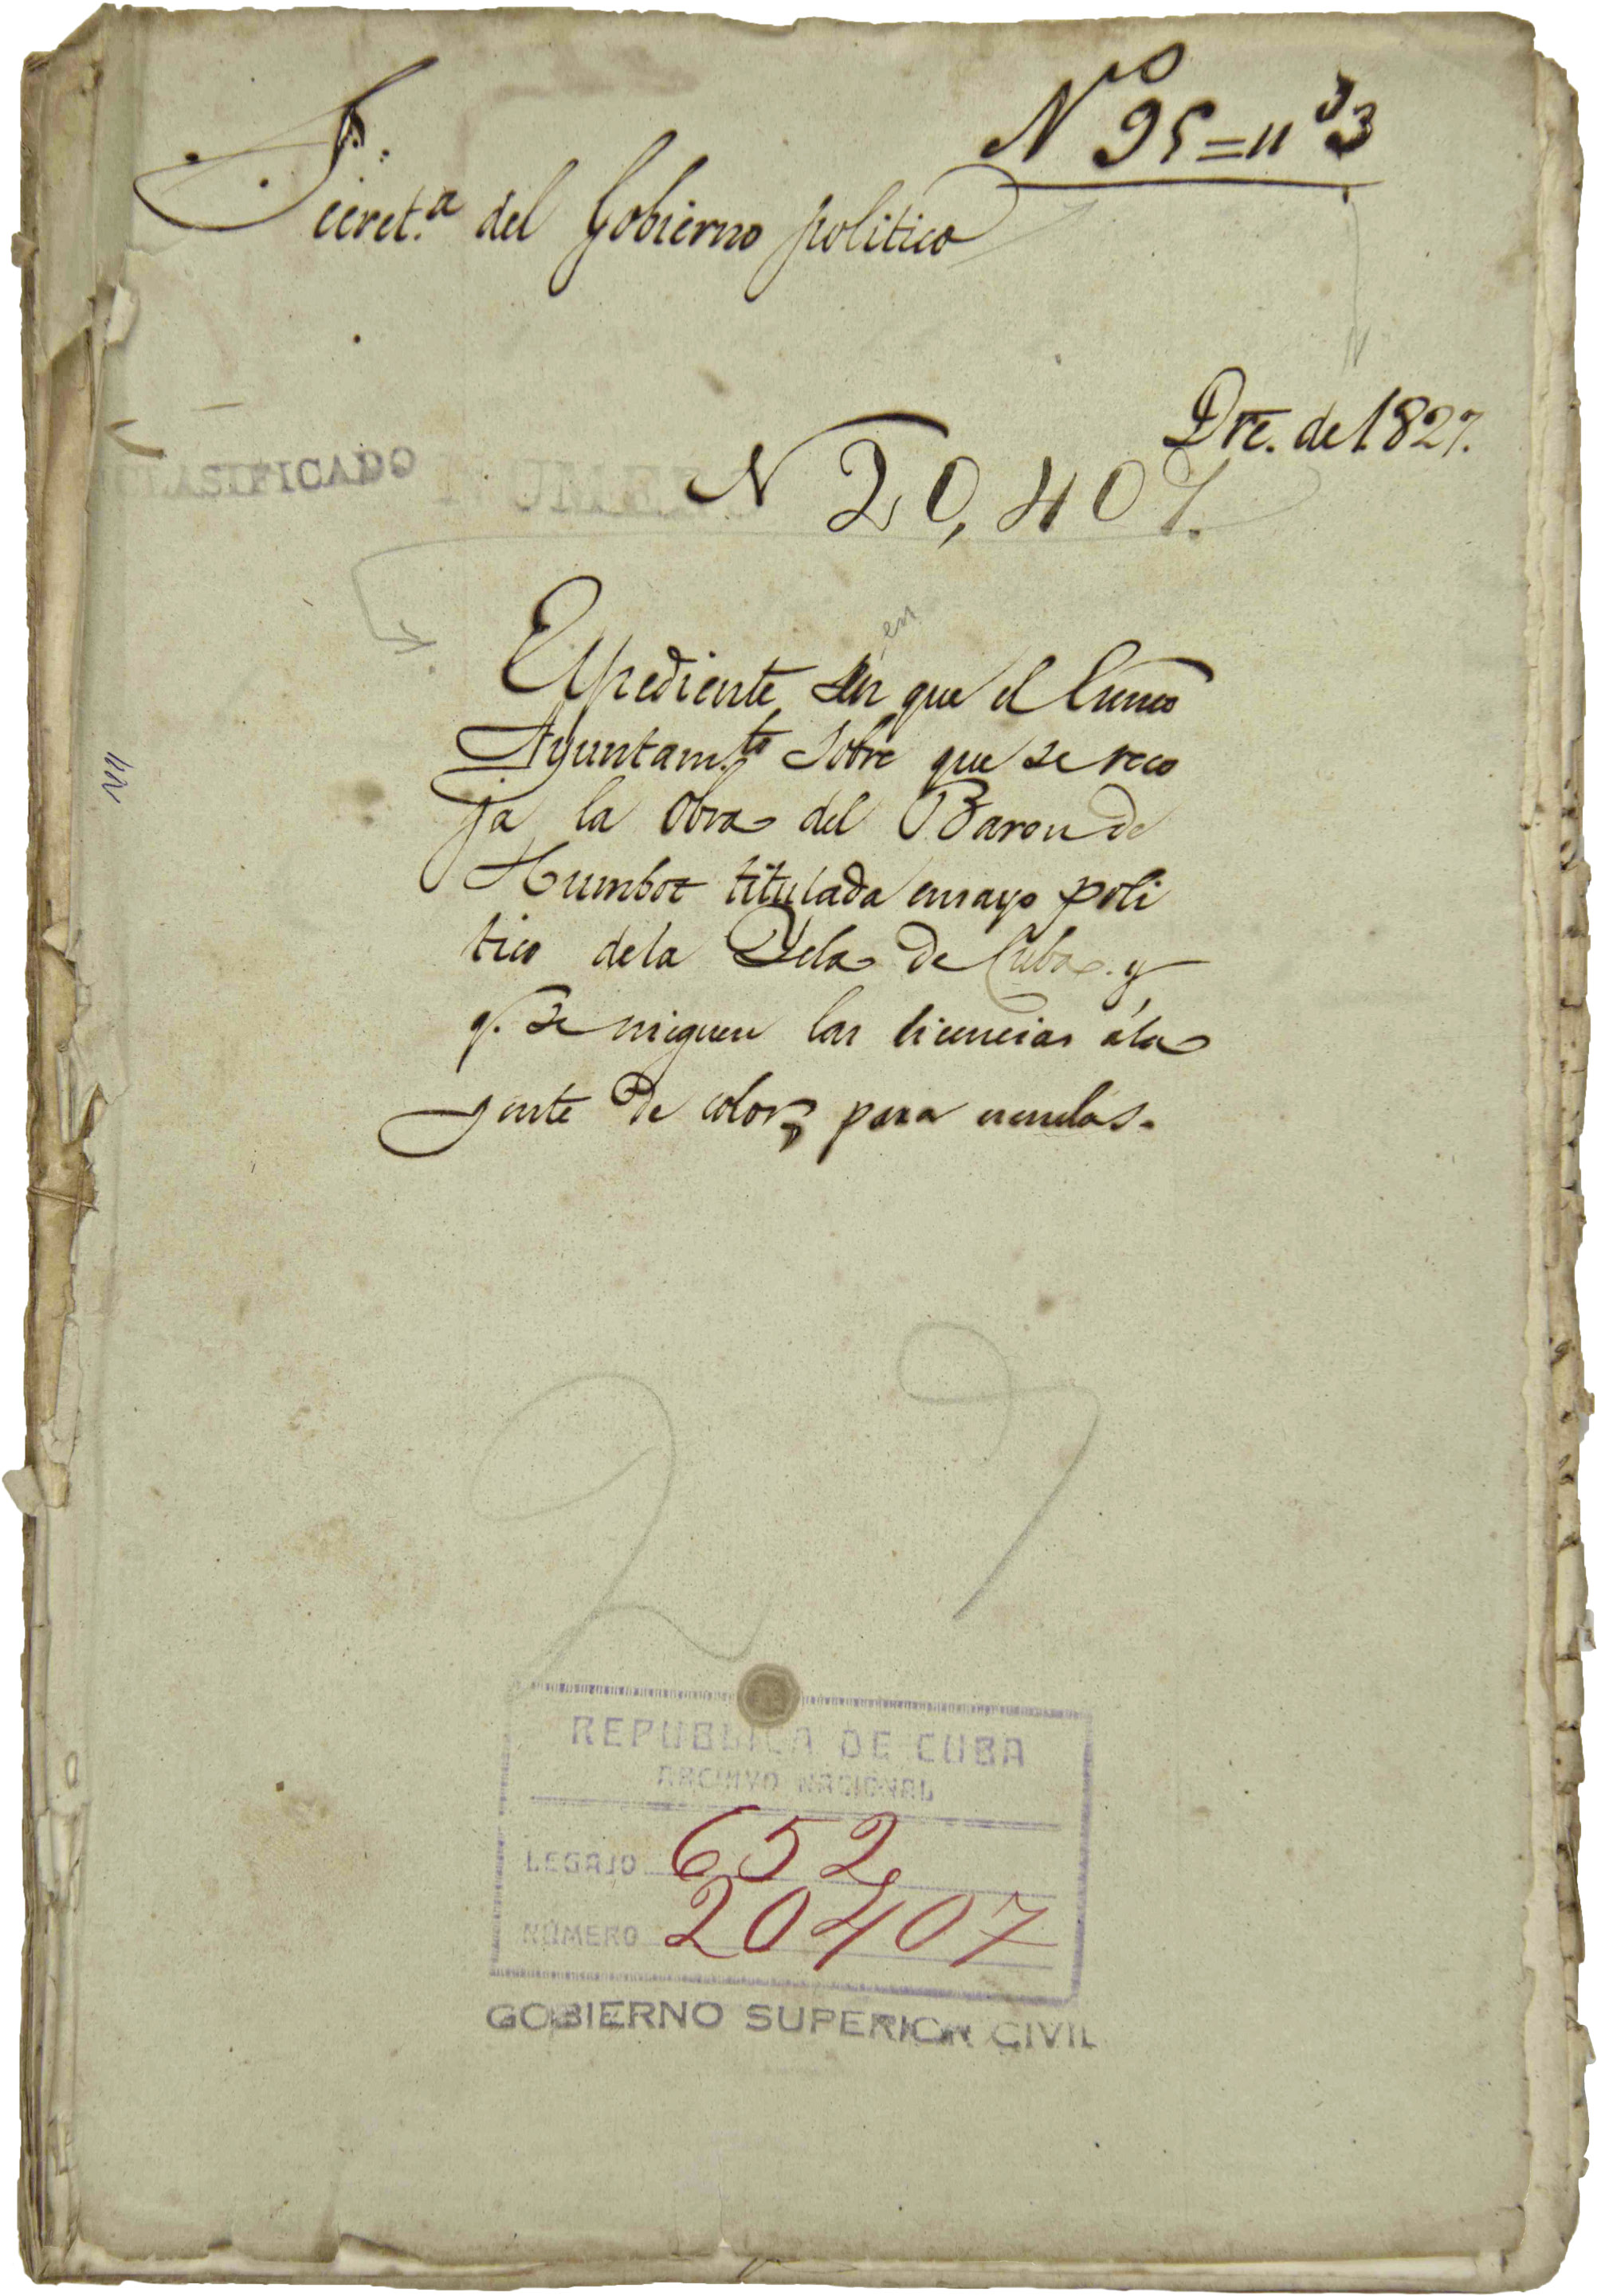 Nº 95=nº 3
Secret.ª del Gobierno politico
Dre. de 1827.
CLASIFICADO
N 20,407.
en
Expediente en que el Exmo
Ayuntam.to sobre que se reco
ja la obra del Baron de
Humbot titulada ensayo poli
tico dela Ysla de Cuba. y
q. se nieguen las licencias ála
gente de color, para escuelas.
27
REPUBLICA DE CUBA
ARCHIVO NACIONAL
LEGAJO 652
NÚMERO 20407
GOBIERNO SUPERIOR CIVIL